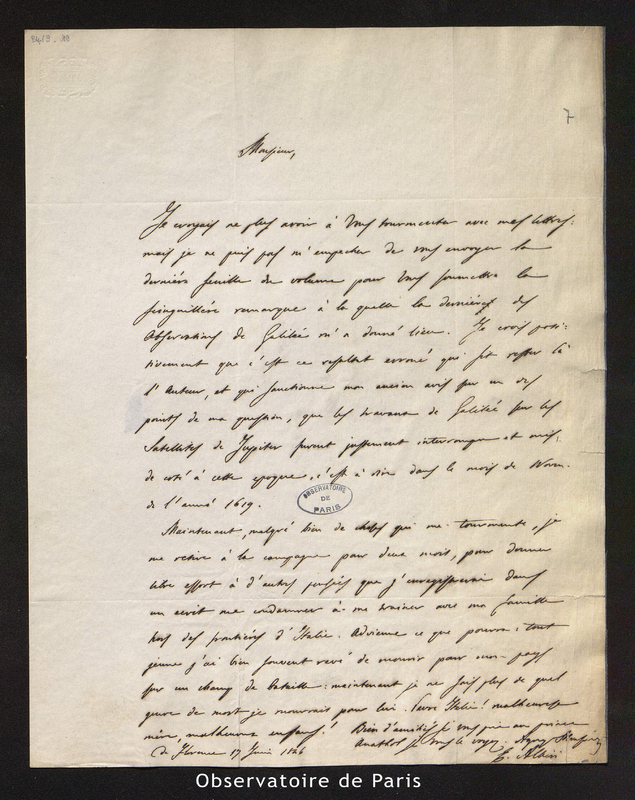 7
Monsieur,
Je croyais ne plus avoir à vous tourmenter avec mes lettres:
mais je ne puis pas m'empecher de vous envoyer la
dernière feuille du volume pour vous soumettre la
singuillière remarque à la quelle la dernière des
Observations de Galilée m'a donné lieu. Je crois posi-
tivement que c'est ce resultat erroné qui fit rester là
l'Auteur, et qui sanctionne mon ancien avis sur un des
points de ma question, que les travaux de Galilée sur les
Satellites de Jupiter furent justement interrompus et mis
de coté à cette epoque, c'est à dire dans le mois de Novm.
de l'année 1619.
OBSERVATOIRE
DE
PARIS
Maintenant, malgré bien de choses qui me tourmente, je
me retire à la campagne pour deux mois, pour donner
libre effort à d'autres pensées que j'enregistrerai dans
un ecrit me condamner à me trainer avec ma famille
hors des frontières d'Italie. Advienne ce que pourra: tout
jeune j'ai bien souvent revé de mourir pour mon pays
sur un champ de bataille: maintenant je ne sais plus de quel
genre de mort je mourrais pour lui. Pauvre Italie! malheureuse
mère, malheureux enfants! Bien d'amitiés je vous prie au prince
de Florence 17 Juin 1846
si vous le voyez.
E. Albèri
Observatoire de Paris